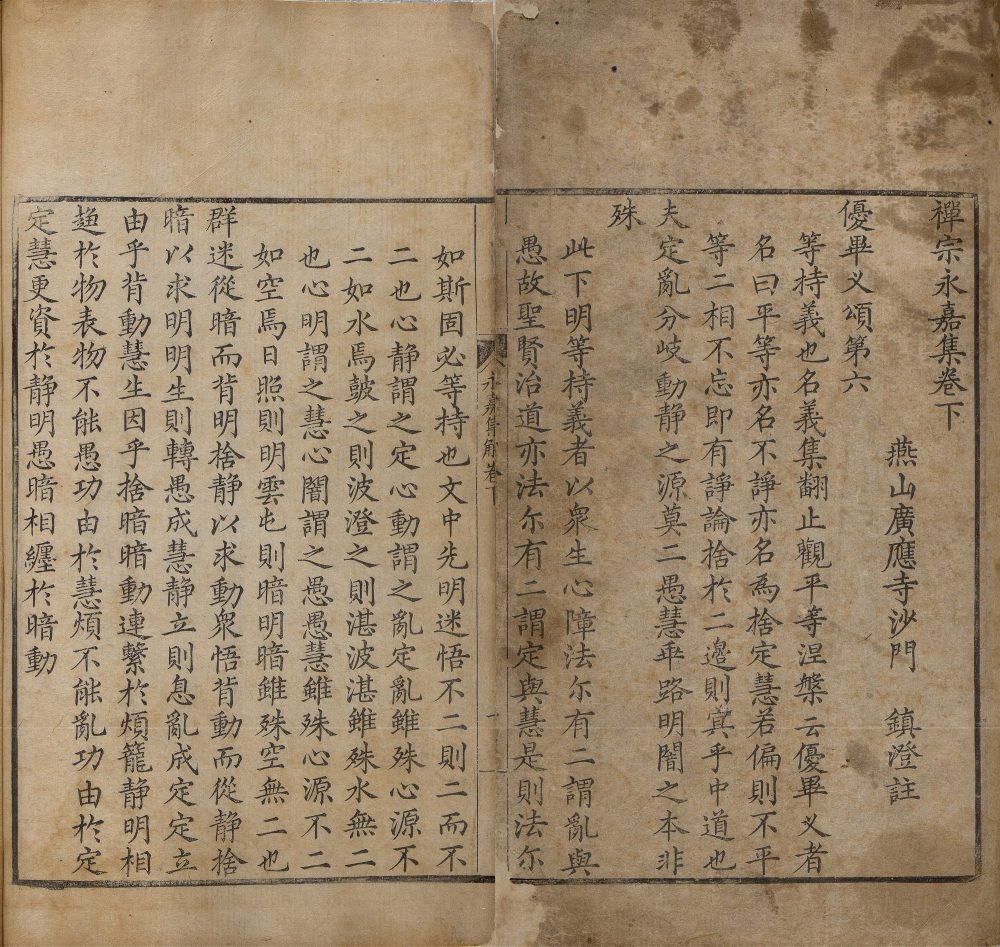 禪宗永嘉集卷下
燕山廣應寺沙門　鎮澄註
優畢义頌第六
等持義也名義集翻止觀平等涅槃云優畢义者
名曰平等亦名不諍亦名為捨定慧若偏則不平
等二相不忘即有諍論捨於二邊則㝠乎中道也
夫定亂分岐動静之源莫二愚慧乖路明闇之本非
殊
此下明等持義者以衆生心障法尓有二謂亂與
愚故聖賢治道亦法尓有二謂定與慧是則法尓
永嘉集解卷下
一
如斯固必等持也文中先明迷悟不二則二而不
二也心静謂之定心動謂之亂定亂雖殊心源不
二如水焉皷之則波澄之則湛波湛雖殊水無二
也心明謂之慧心闇謂之愚愚慧雖殊心源不二
如空焉日照則明雲屯則暗明暗雖殊空無二也
群迷從暗而背明捨静以求動衆悟背動而從静捨
暗以求明明生則轉愚成慧静立則息亂成定定立
由乎背動慧生因乎捨暗暗動連繫於煩籠静明相
趍於物表物不能愚功由於慧煩不能亂功由於定
定慧更資於静明愚暗相纏於暗動